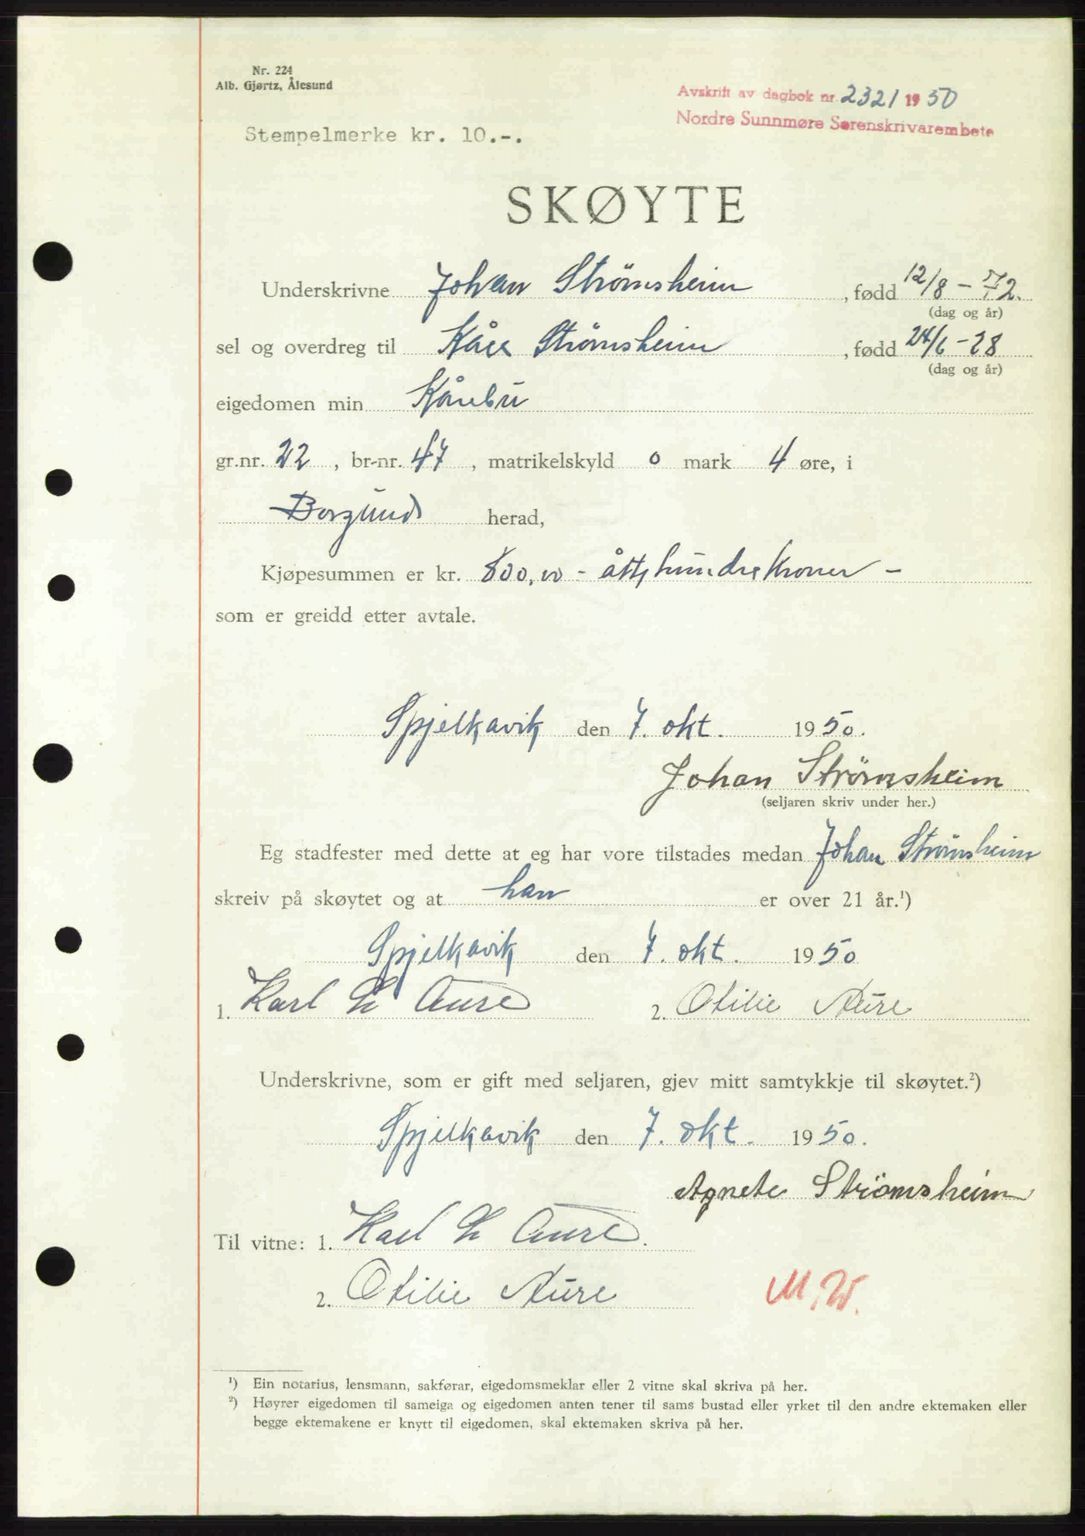 Nr. 224
Alb. Gjørtz, Ålesund
Avskrift av dagbok nr. 2321 1950
Nordre Sunnmøre Sørenskrivarembete
Stempelmerke kr. 10.-.
SKØYTE
Underskrivne Johan Strömsheim, fødd 12/8 - 72.
(dag og år)
sel og overdreg til Kåre Strömsheim, fødd 24/6 - 28
(dag og år)
eigedomen min Kårebu
gr.nr. 22, br-nr. 47, matrikelskyld 0 mark 4 øre, i
Borgund herad,
Kjøpesummen er kr. 800,00 - åttehundrekroner -
som er greidd etter avtale.
Spjelkavik den 7. okt. 1950.
Johan Strömsheim
(seljaren skriv under her.)
Eg stadfester med dette at eg har vore tilstades medan Johan Strömsheim
skreiv på skøytet og at han er over 21 år.¹)
Spjelkavik den 7. okt. 1950
1. Karl L Aure 2. Otilie Aure
Underskrivne, som er gift med seljaren, gjev mitt samtykkje til skøytet.²)
Spjelkavik den 7. okt. 1950.
Agnete Strömsheim
Til vitne: 1. Karl L Aure.
2. Otilie Aure
M.W.
¹) Ein notarius, lensmann, sakførar, eigedomsmeklar eller 2 vitne skal skriva på her.
²) Høyrer eigedomen til sameiga og eigedomen anten tener til sams bustad eller yrket til den andre ektemaken eller
begge ektemakene er knytt til eigedomen, skal ektemaken skriva på her.